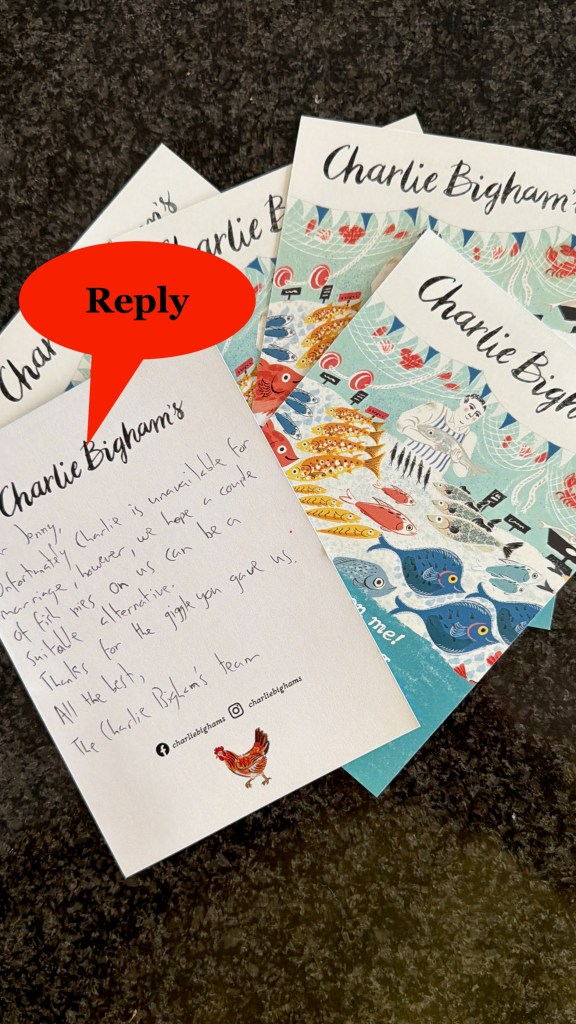 Charlie Bigham's
Charlie B
Char
am's
Charlie Bigham's
Reply
Charlie Bigham's
Jonny,
Unfortunately Charlie is unavailable for
marriage, however, we hope a couple
of fish pies on us can be a
suitable alternative.
Thanks for the giggle you gave us.
All the best,
The Charlie Bigham's team
charliebighams
charliebighams
on me!